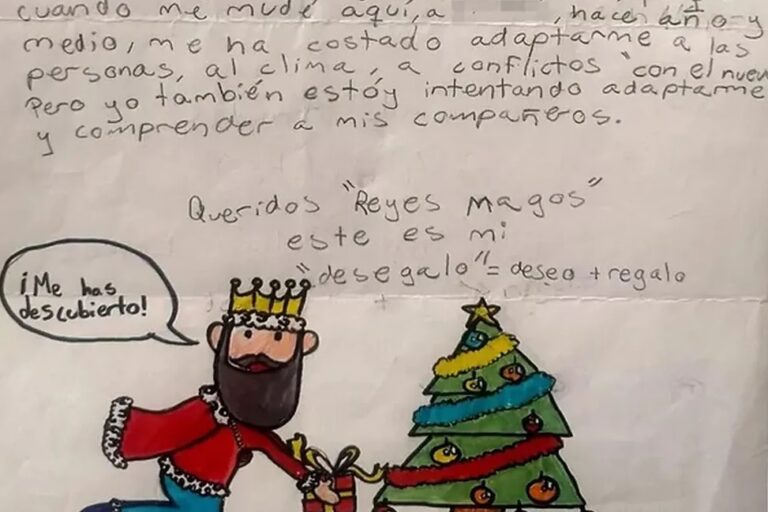 cuando me mudé aquí, a , hace 1 año y
medio, me ha costado adaptarme a las
personas, al clima, a conflictos "con el nuev
Pero yo también estóy intentando adaptarme
y comprender a mis compañeros.
Queridos "Reyes Magos"
este es mi
"desegalo" = deseo + regalo
¡Me has
descubierto!